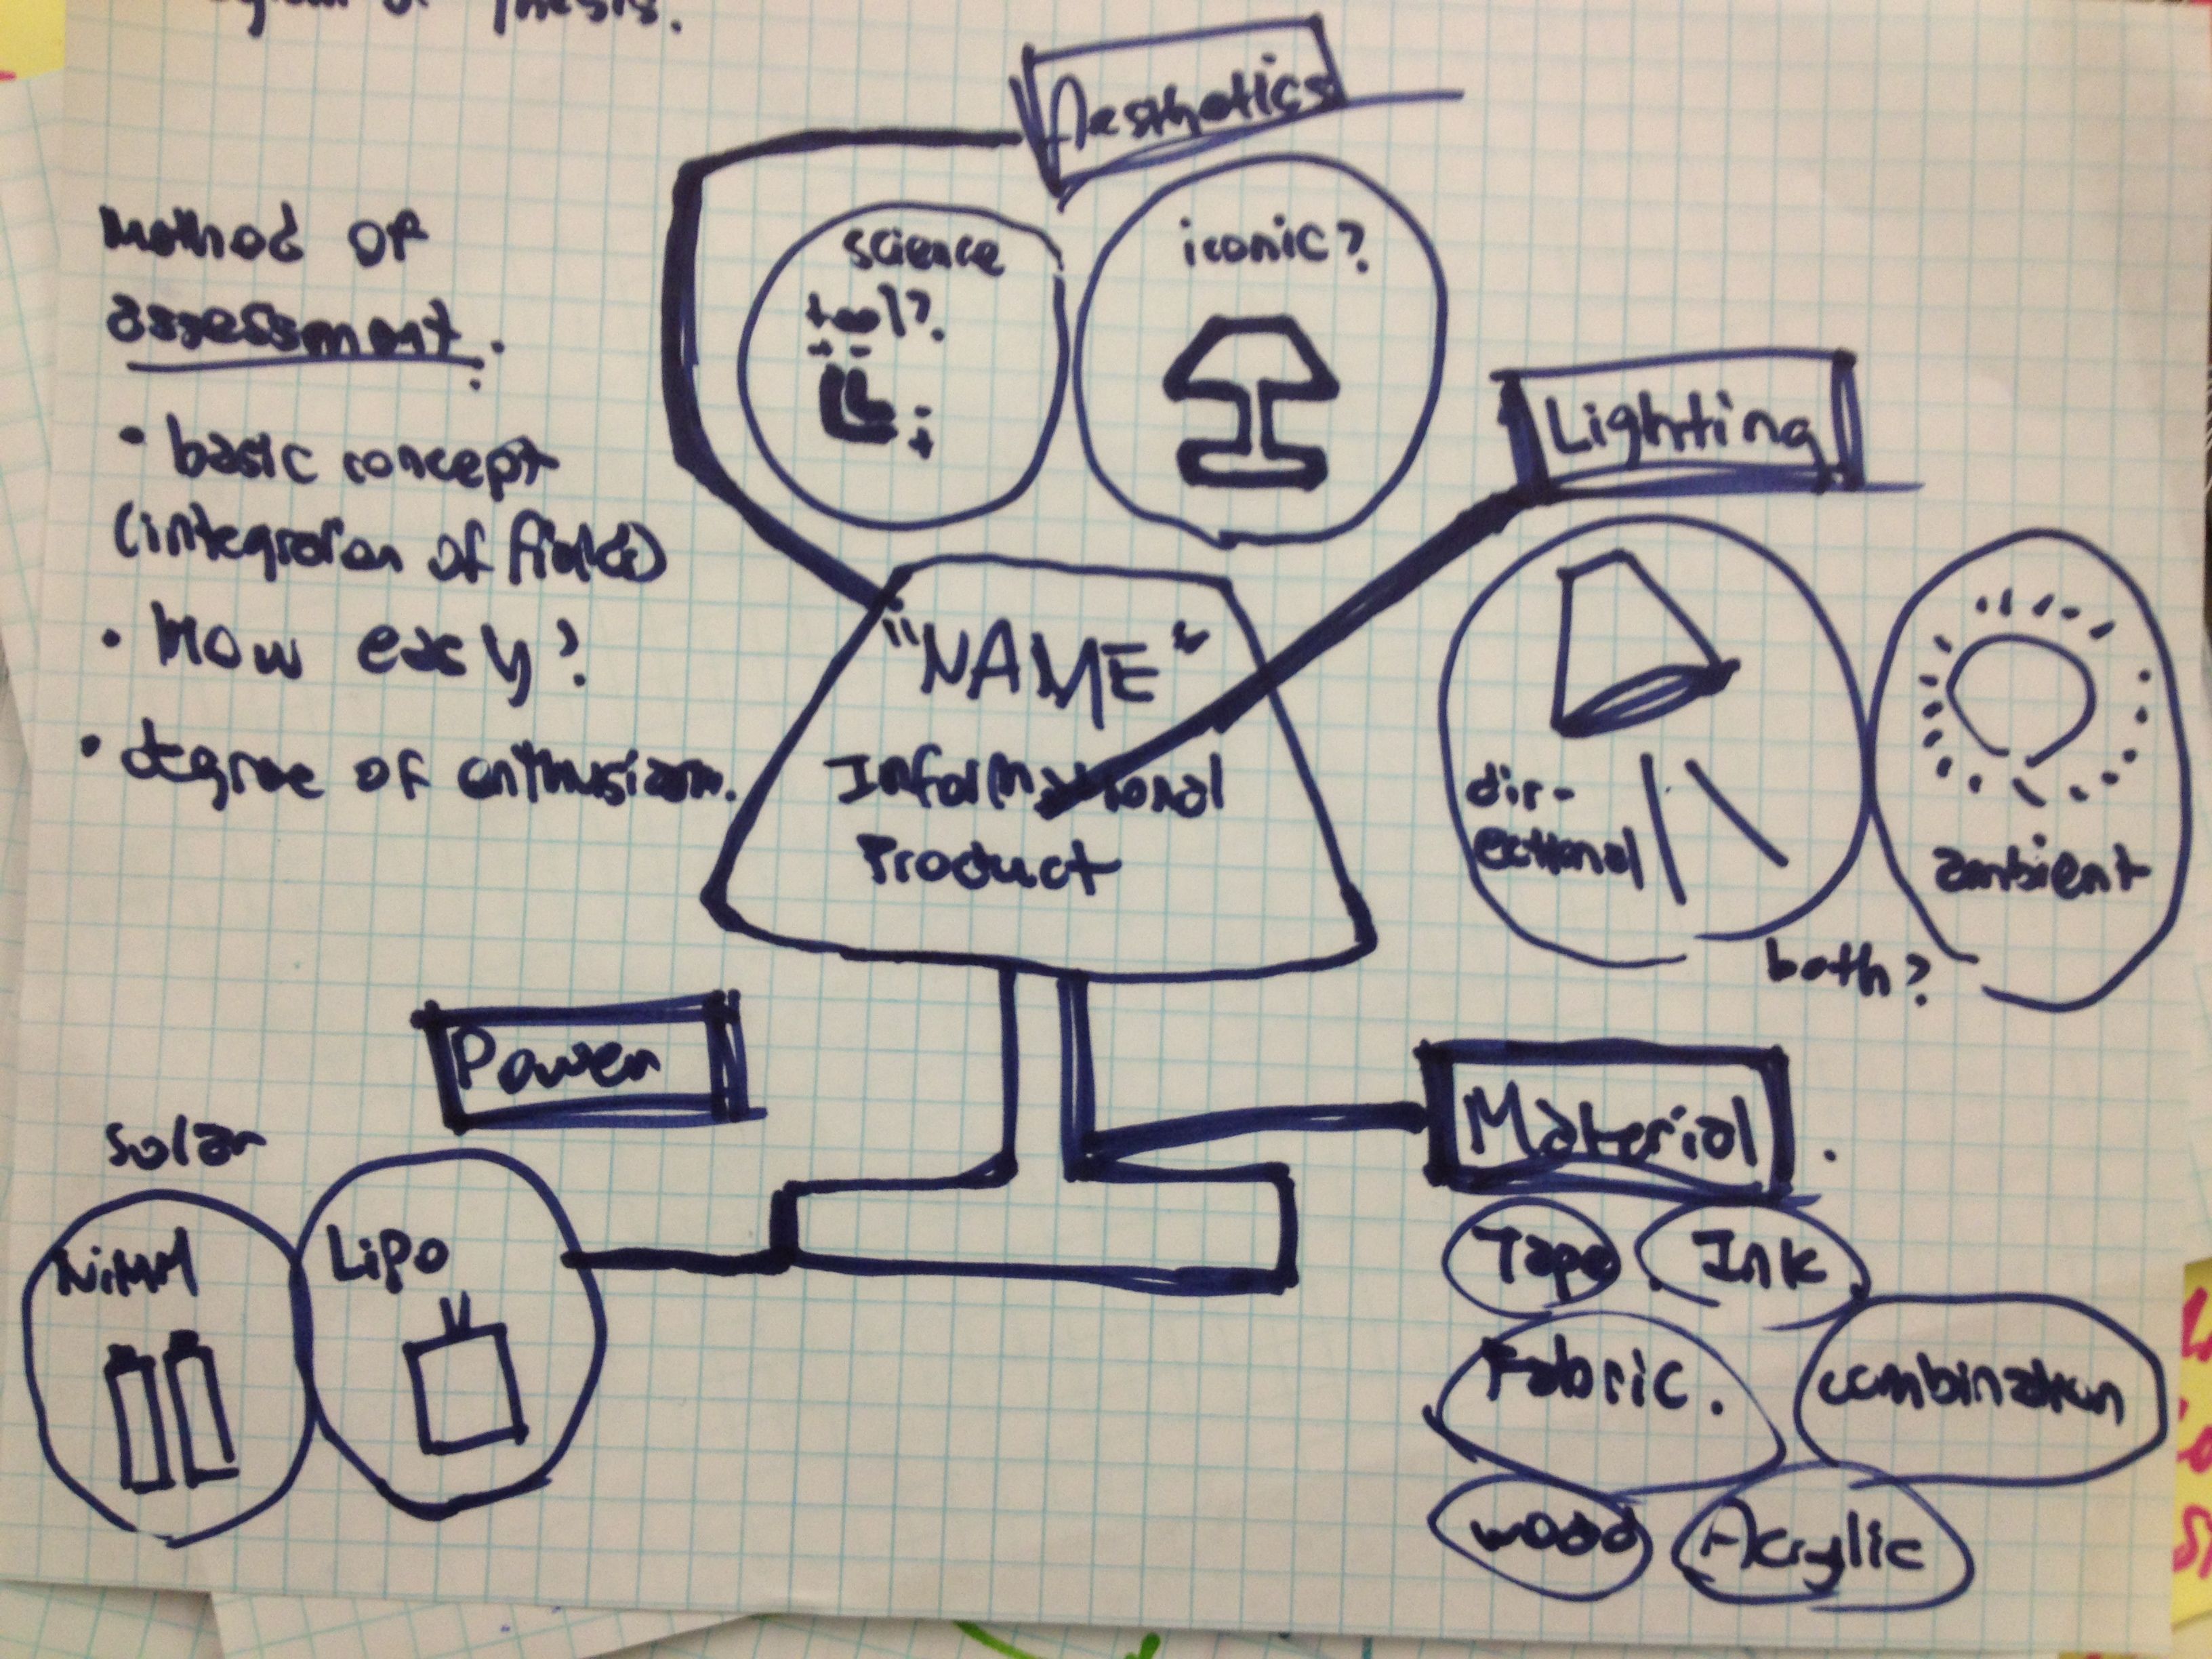 of thesis.
Aesthetics
science
tool?
iconic?
Method of
assessment.
• basic concept
(integration of fields)
• How easy?
• degree of enthusiasm.
Lighting
dir-
ectional
ambient
both?
"NAME"
Informational
Product
Power
Solar
NiMH
LiPo
Material.
Tape
Ink
Fabric.
combination
wood
Acrylic